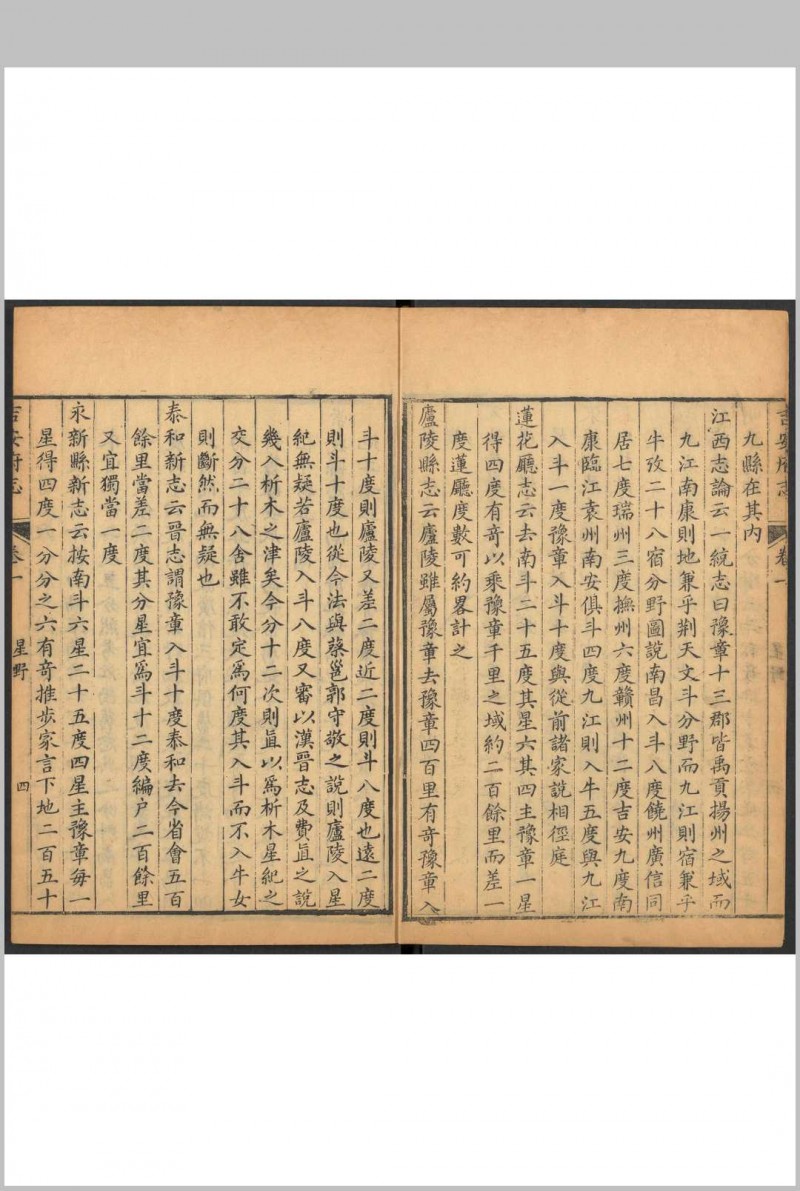 吉安府志
卷一
九縣在其內
江西志論云一統志曰豫章十三郡皆禹貢揚州之域而
九江南康則地兼乎荆天文斗分野而九江則宿兼乎
牛攷二十八宿分野圖說南昌入斗八度饒州廣信同
居七度瑞州三度撫州六度贛州十二度吉安九度南
康臨江袁州南安俱斗四度九江則入牛五度與九江
入斗一度豫章入斗十度與從前諸家說相徑庭
蓮花廳志云去南斗二十五度其星六其四主豫章一星
得四度有奇以乘豫章千里之域約二百餘里而差一
度蓮廳度數可約畧計之
廬陵縣志云廬陵雖屬豫章去豫章四百里有奇豫章入
斗十度則廬陵又差二度近二度則斗八度也遠二度
則斗十度也從今法與蔡邕郭守敬之說則廬陵入星
紀無疑若廬陵入斗八度又審以漢晉志及費直之說
幾入析木之津矣今分十二次則直以爲析木星紀之
交分二十八舍雖不敢定爲何度其入斗而不入牛女
則斷然而無疑也
泰和新志云晉志謂豫章入斗十度泰和去今省會五百
餘里當差二度其分星宜爲斗十二度編户二百餘里
又宜獨當一度
永新縣新志云按南斗六星二十五度四星主豫章每一
星得四度一分分之六有奇推步家言下地二百五十
吉安府志
卷一
星野
四